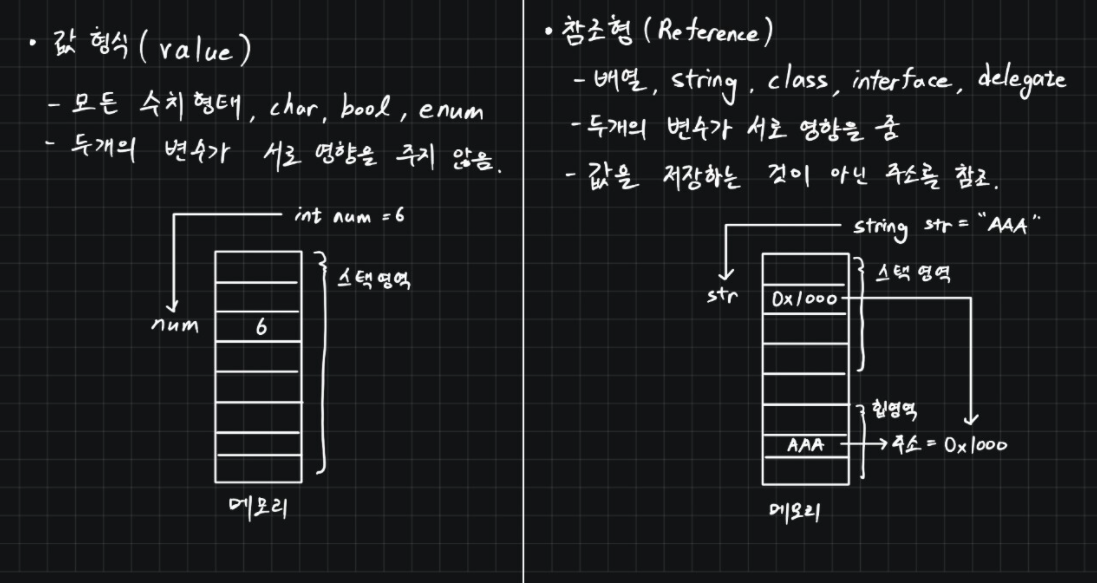 • 값 형식 (value)
- 모든 수치 형태, char, bool, enum
- 두개의 변수가 서로 영향을 주지 않음.
int num = 6
스택영역
num
6
메모리
• 참조형 (Reference)
- 배열, string, class, interface, delegate
- 두개의 변수가 서로 영향을 줌
- 값을 저장하는 것이 아닌 주소를 참조.
string str = "AAA"
스택 영역
str
0x1000
힙영역
AAA
주소 = 0x1000
메모리